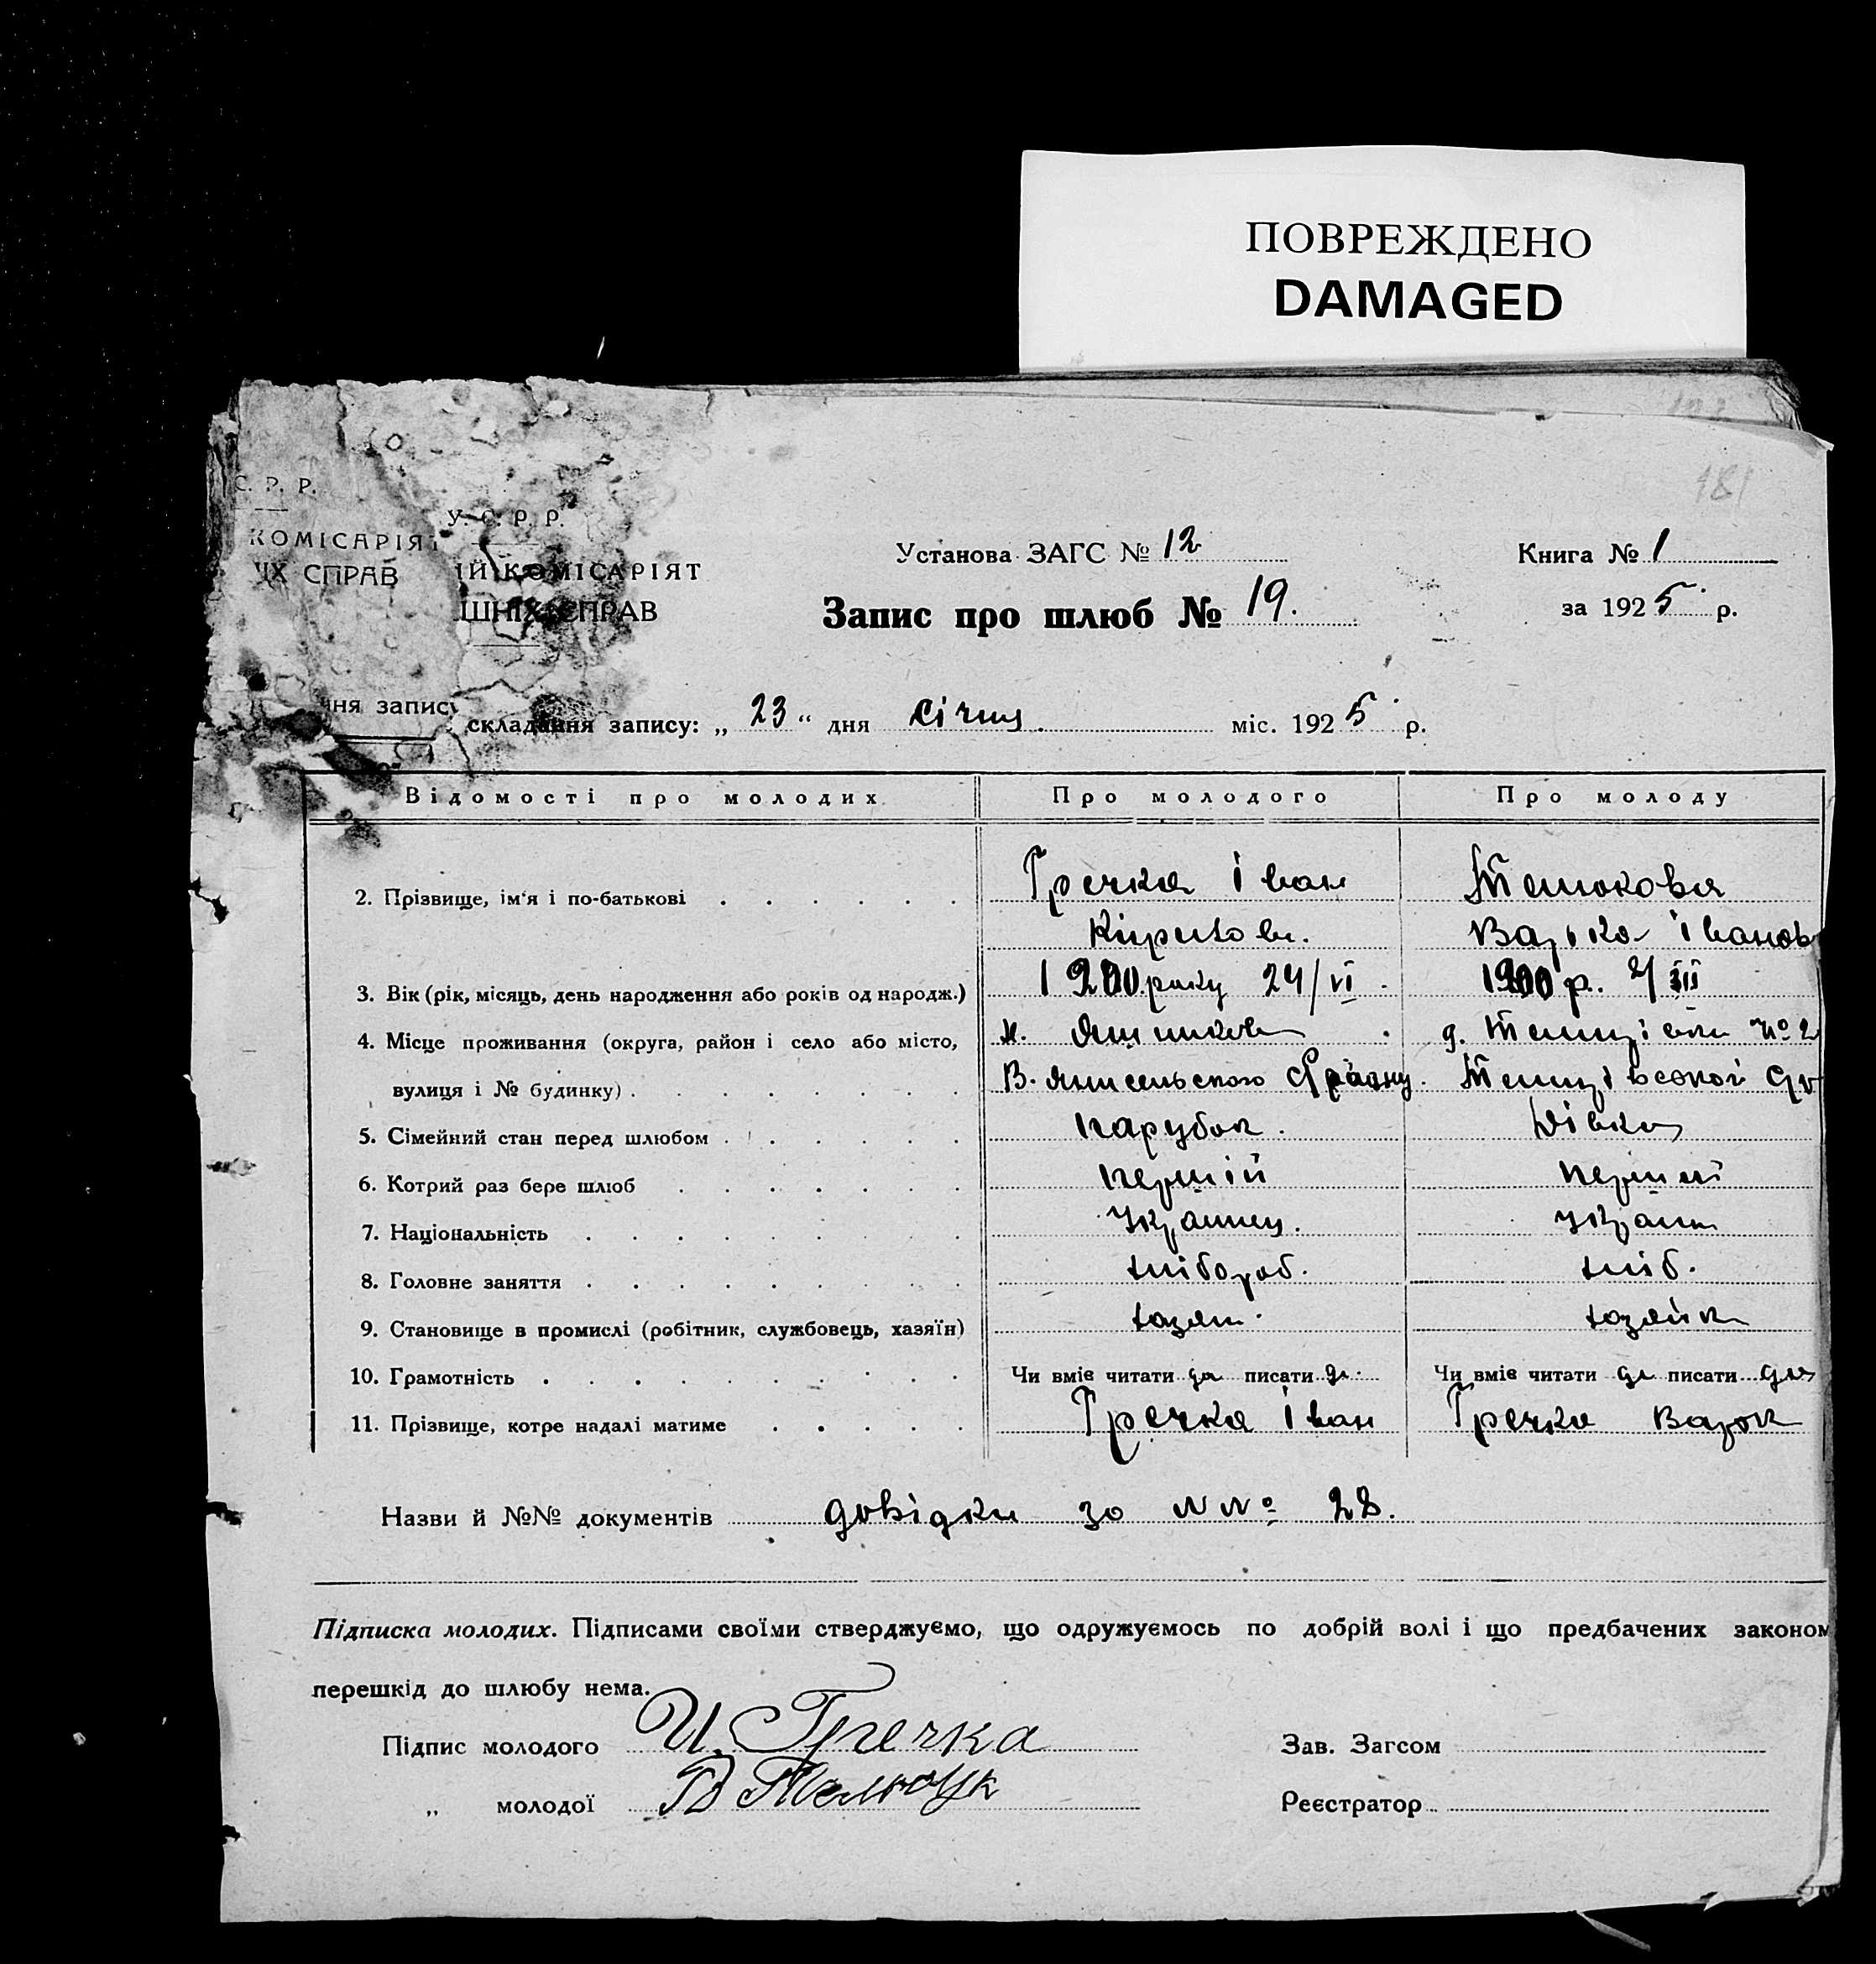 ПОВРЕЖДЕНО
DAMAGED
181
С. Р. Р.
КОМІСАРІЯТ
ИХ СПРАВ
У. С. Р. Р.
ІЙ КОМІСАРІЯТ
ШНІХ СПРАВ
Установа ЗАГС № 12
Книга № 1
Запис про шлюб № 19.
за 1925 р.
ння запису
складання запису: „ 23 “ дня січня міс. 1925 р.
Відомості про молодих Про молодого Про молоду
2. Прізвище, ім'я і по-батькові Гречка Іван
Іванов
3. Вік (рік, місяць, день народження або років од народж.) 1900 року 24/VI 1900 р.
4. Місце проживання (округа, район і село або місто,
вулиця і № будинку)
5. Сімейний стан перед шлюбом парубок. дівка
6. Котрий раз бере шлюб перший перший
7. Національність Украинец. Украин
8. Головне заняття хлібороб. хліб.
9. Становище в промислі (робітник, службовець, хазяїн) хазяин хазяйк
10. Грамотність Чи вміє читати да писати да Чи вміє читати да писати да
11. Прізвище, котре надалі матиме Гречка Іван Гречка
Назви й №№ документів довідки за №№ 28.
Підписка молодих. Підписами своїми стверджуємо, що одружуємось по добрій волі і що предбачених законом
перешкід до шлюбу нема.
Підпис молодого И. Гречка Зав. Загсом
„ молодої В Реєстратор